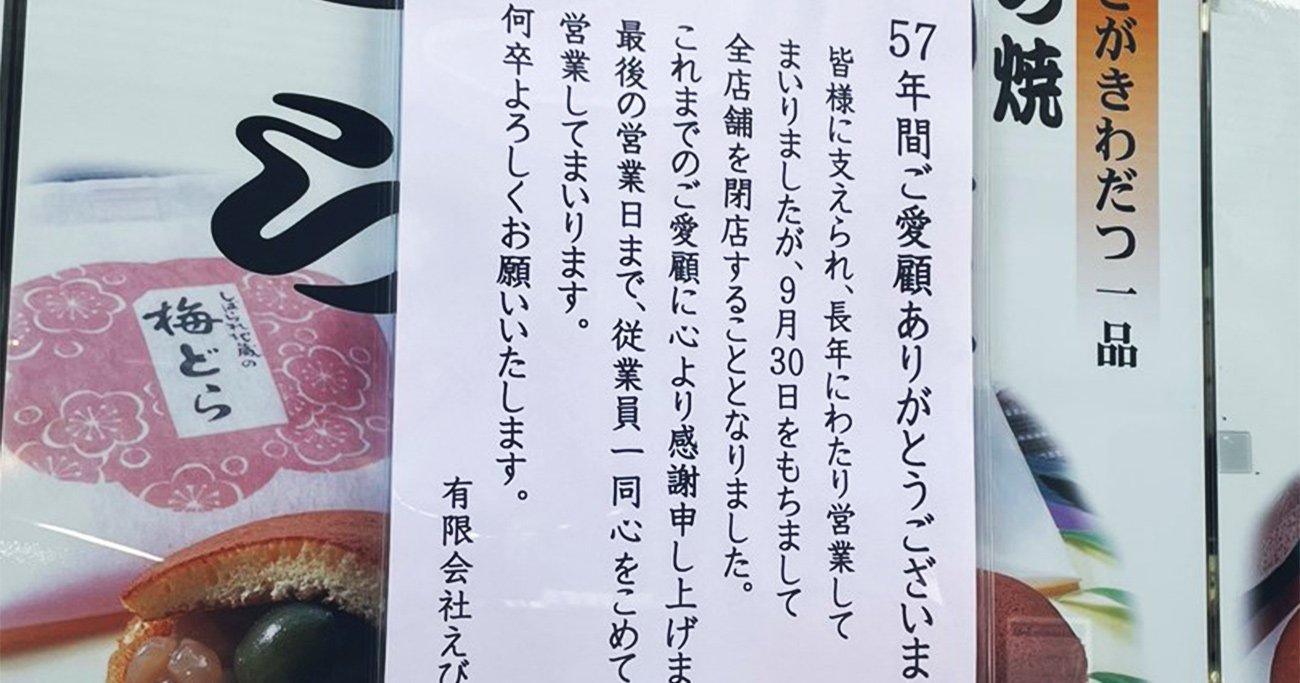 57年間ご愛顧ありがとうございま
皆様に支えられ、長年にわたり営業して
まいりましたが、9月30日をもちまして
全店舗を閉店することとなりました。
これまでのご愛顧に心より感謝申し上げま
最後の営業日まで、従業員一同心をこめて
営業してまいります。
何卒よろしくお願いいたします。
有限会社えび
がきわだつ一品
焼
しばられ地蔵の
梅どら